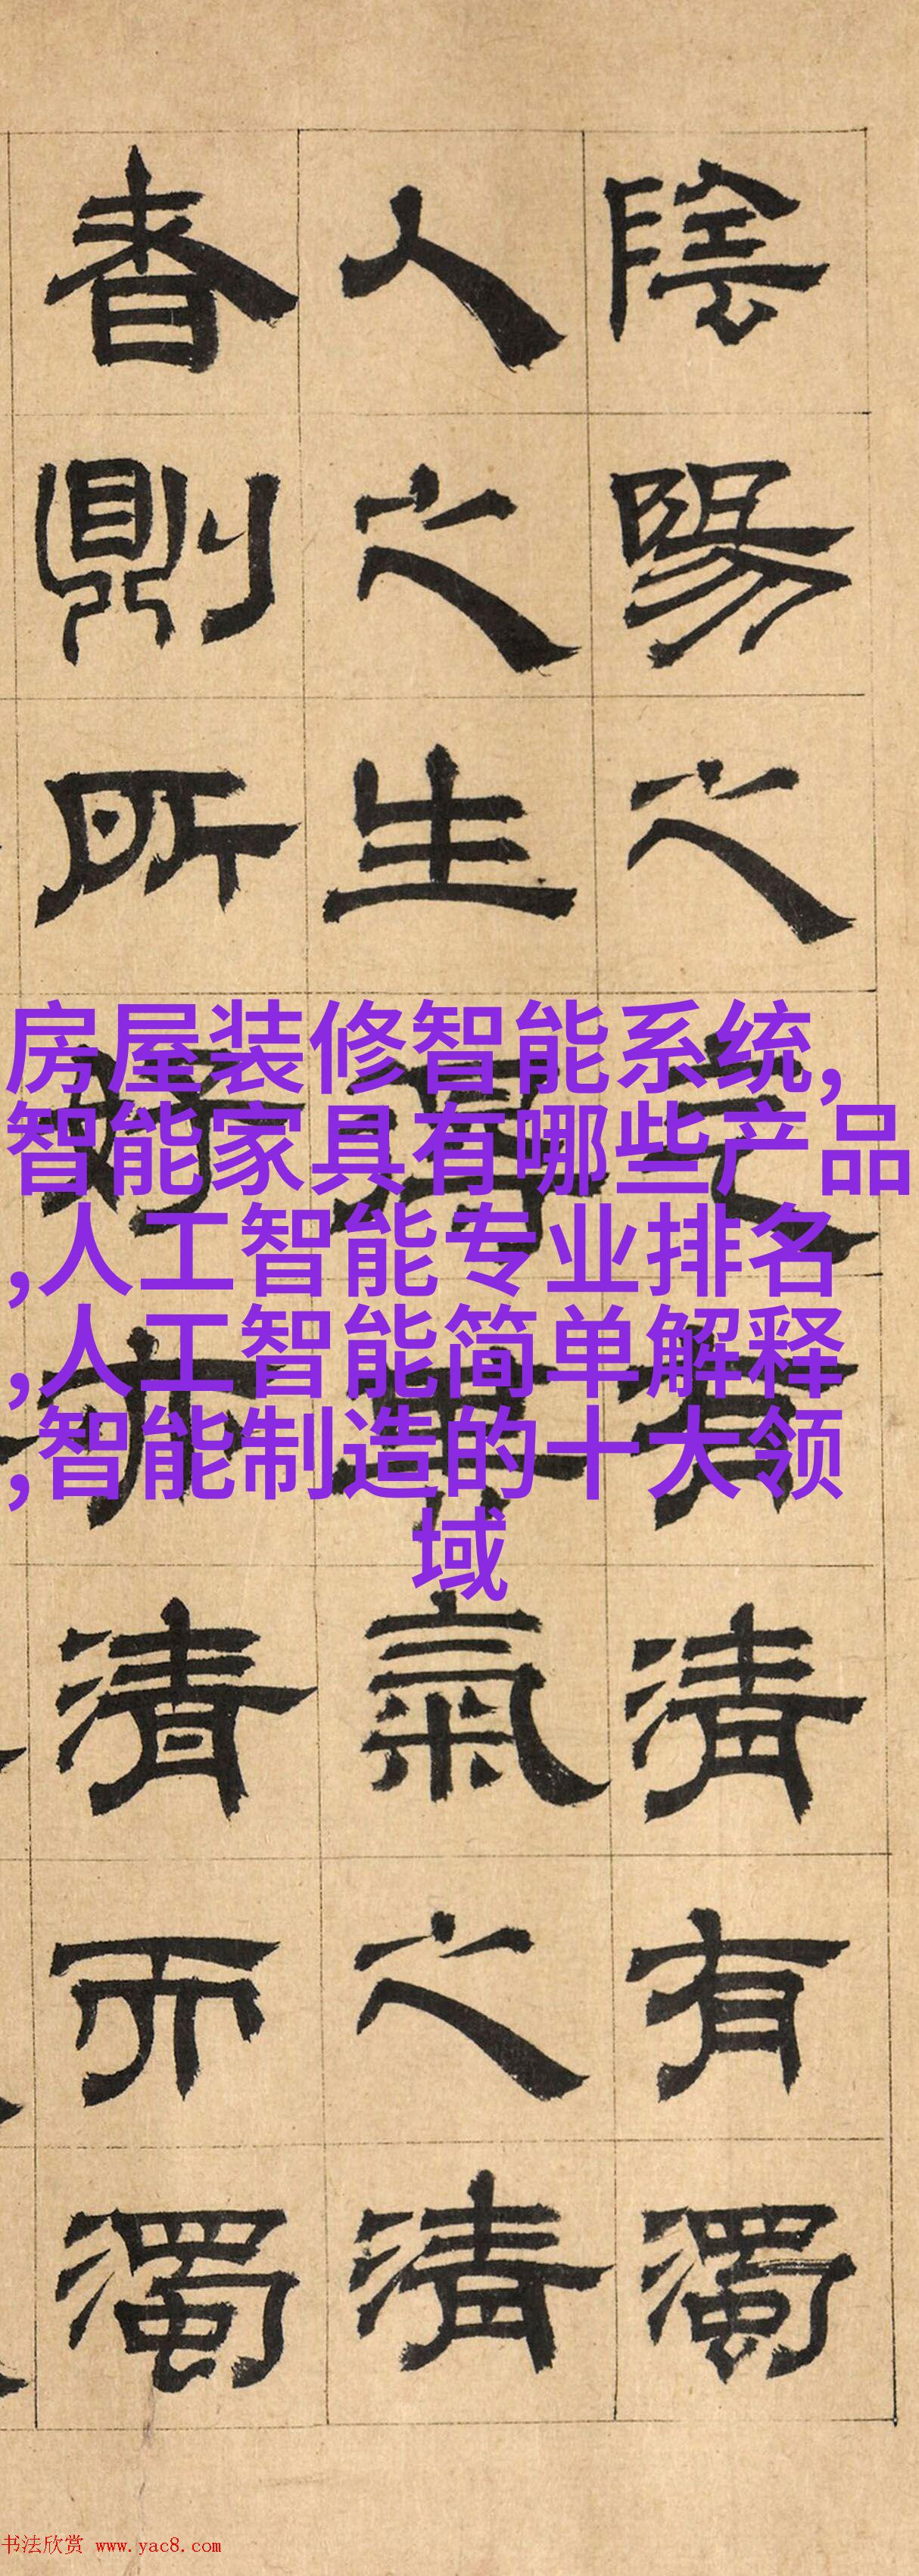 陰陽之有清有濁
人之生氣之清
者則所清而濁
房屋装修智能系统,
智能家具有哪些产品
,人工智能专业排名
,人工智能简单解释
,智能制造的十大领
域
书法欣赏 www.yac8.com